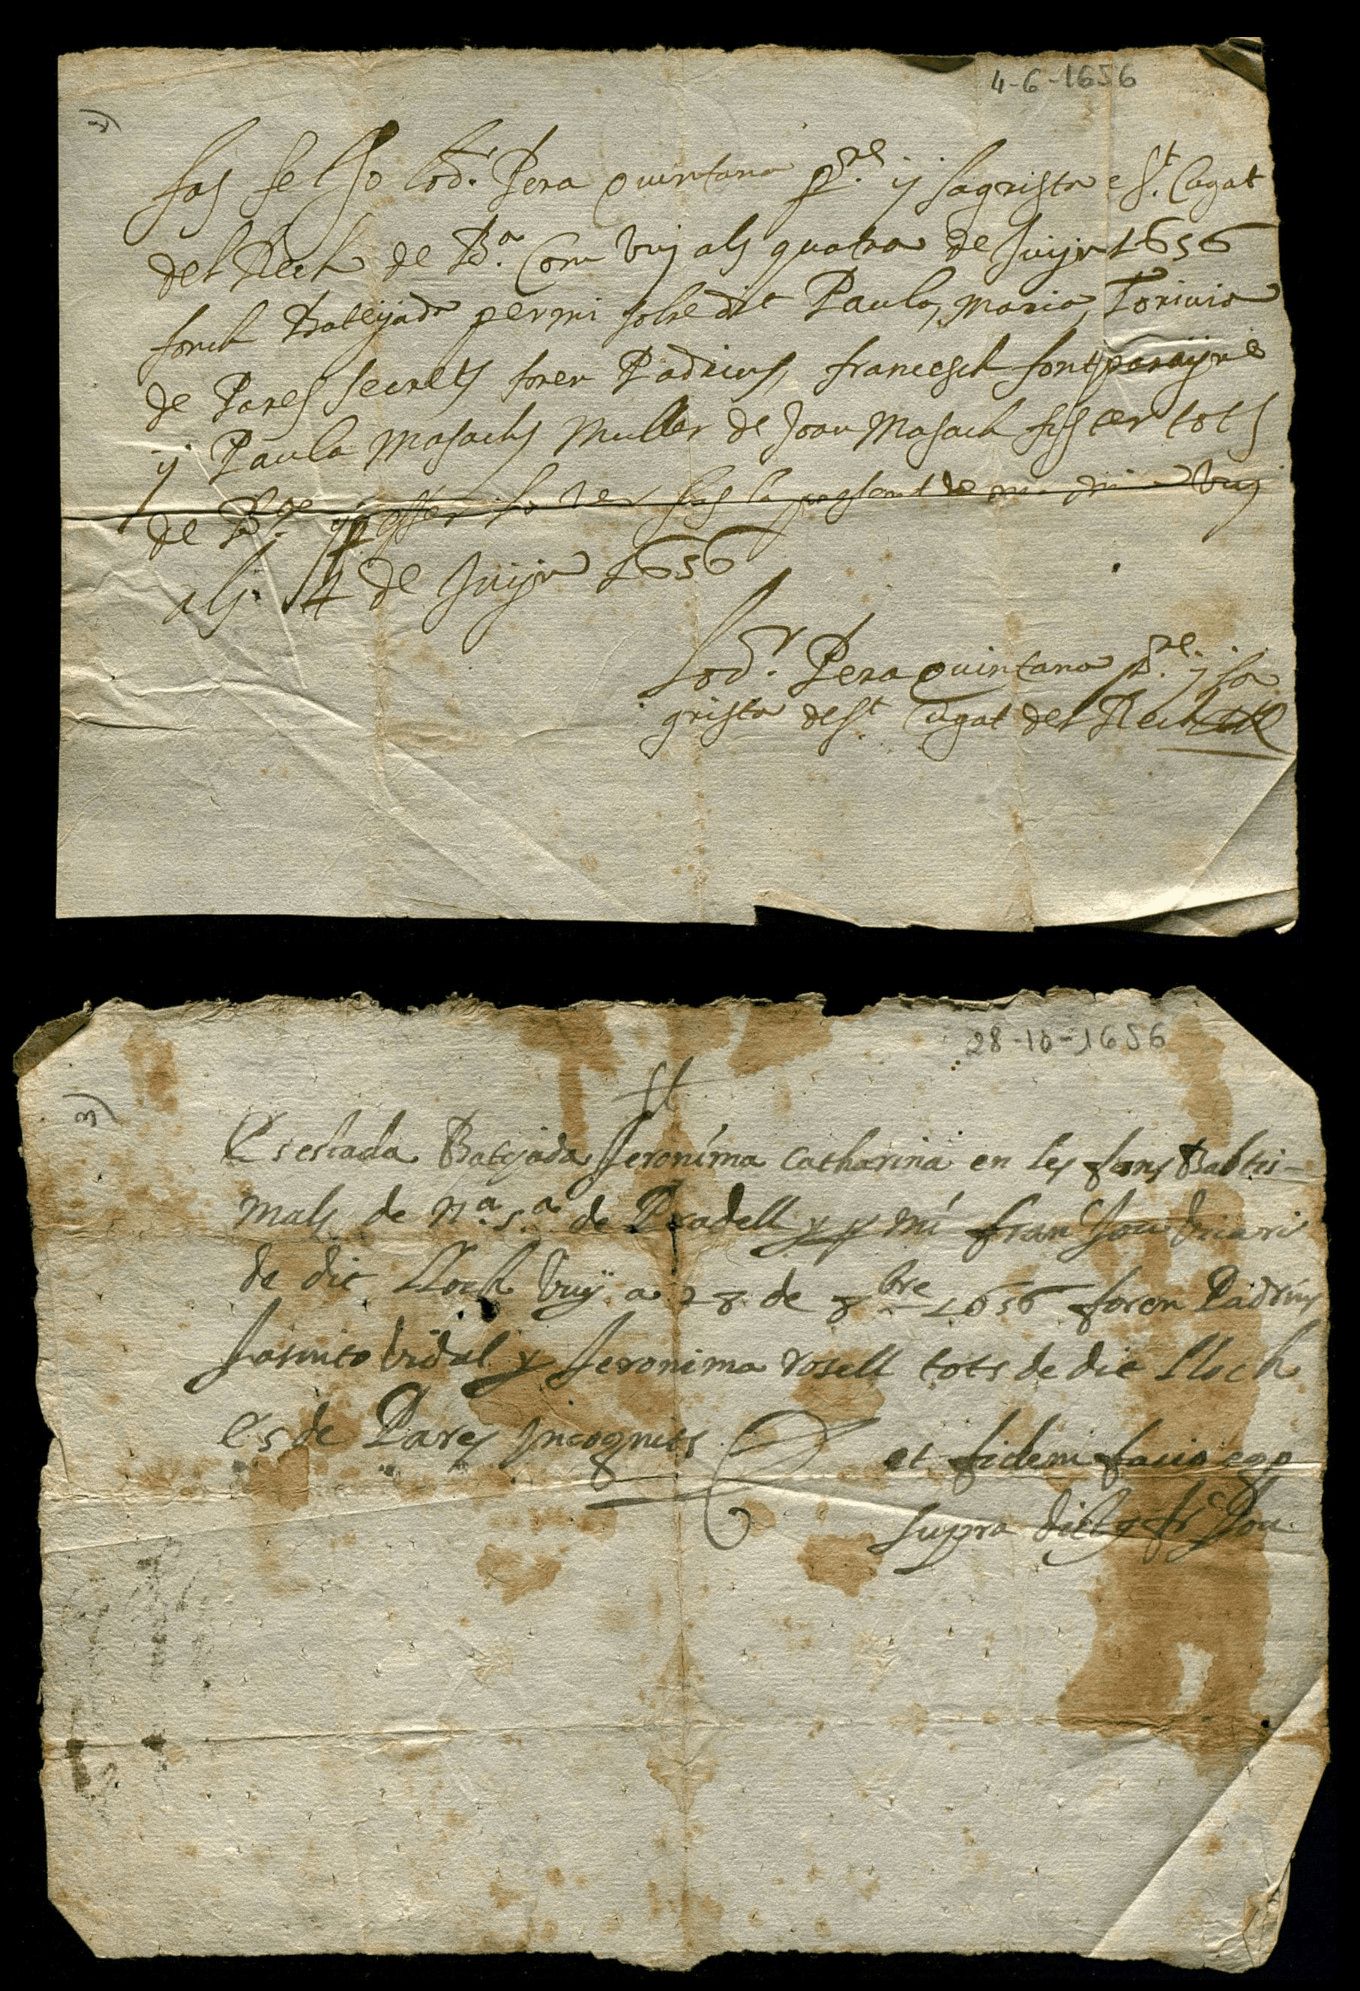 4-6-1656
fas fe Jo Lo Dr. Pera Quintana pre. y sagrista e St. Cugat
del Rech de Ba. Com vuy als quatra de Juyn 1656
fonch Batejada per mi sobredit Paula, Maria,
de Pares secrets foren Padrins, francesch font
y Paula Masachs Muller de Joan Masach tots
de Bna. y per esser lo ver fas la present de ma mia vuy
als 4 de Juyn 1656
Lo Dr. Pera Quintana pre. y sa
grista de St. Cugat del Rech
28-10-1656
3)
Es estada Batejada Jeronima Catharina en les fons Babtis-
mals de na. sa. de Pradell per mi fran Jou vicari
de dit Lloch vuy a 28 de 8bre 1656 foren Padrins
Jasinto Vidal y Jeronima rosell tots de dit Lloch
es de Pares Incognits et fidem facio ego
supra dictus fr Jou